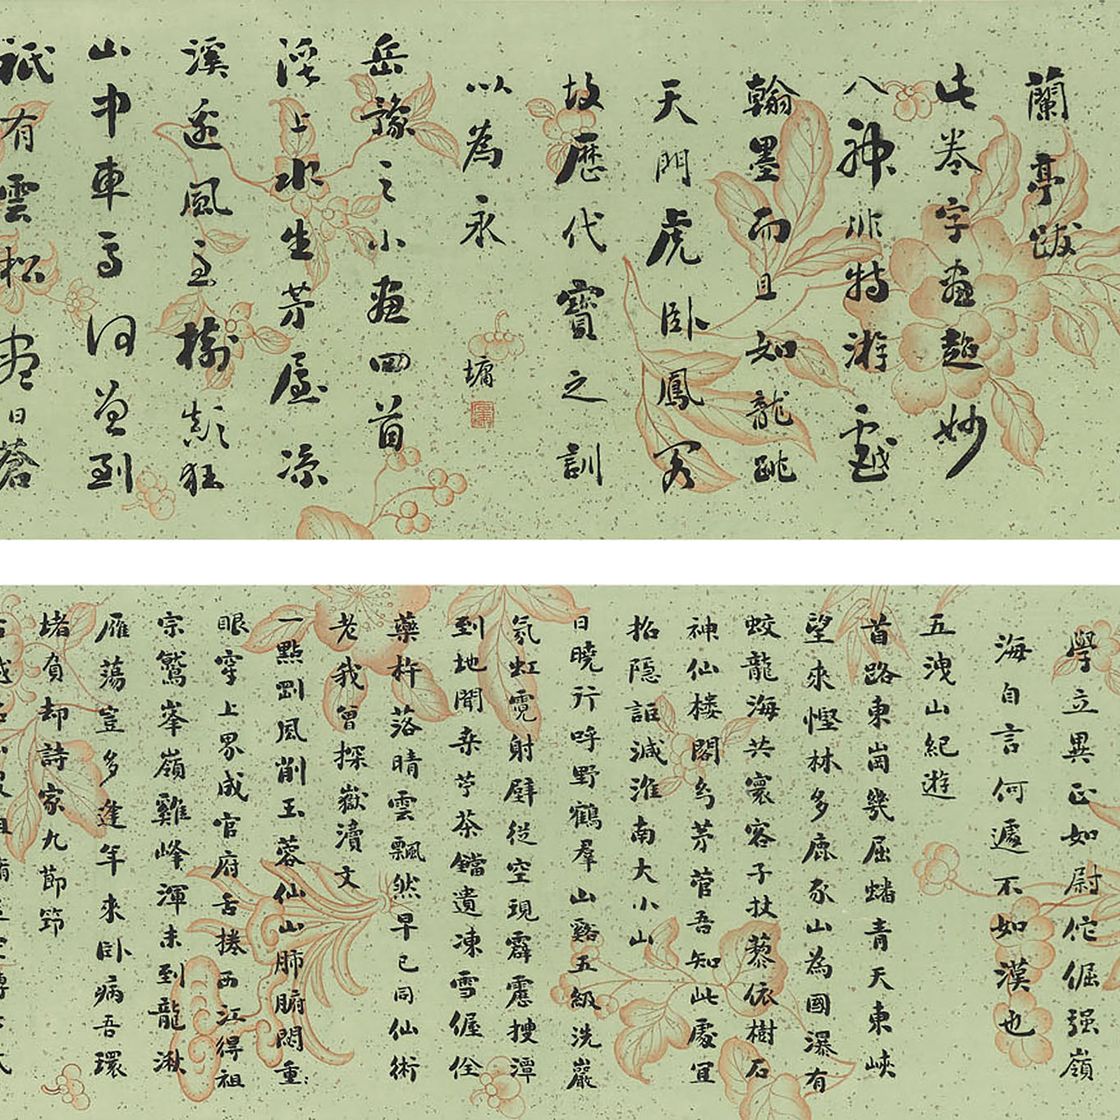 蘭亭跋
此卷字畫超妙
八神非特游戲
翰墨而且如龍跳
天門虎臥鳳閣
故歷代寶之訓
以為永
墉
岳豫之小畫四首
溪上水生茅屋凉
溪邊風急樹顛狂
山中車馬何曾到
祇有雲松盡日蒼
學立異正如尉佗倔强嶺
海自言何遽不如漢也
五洩山紀遊
首路東崗幾屈蟠青天東峽
望來慳林多鹿豕山為國瀑有
蛟龍海共寰容子扶藜依樹石
神仙楼閣勾茅菅吾知此處宜
招隱詎減淮南大小山
日曉行呼野鶴羣山谿五級洗巖
氛虹霓射壁從空現霹靂搜潭
到地聞桒苧茶鐺遺凍雪偓佺
藥杵落晴雲飄然早已同仙術
老我曾探嶽瀆文
一點罡風削玉蓉仙山肺腑閟重
眼穿上界成官府舌捲西江得祖
宗鷲峯嶺雞峰渾未到龍湫
雁蕩豈多逢年來臥病吾環
堵負却詩家九節筇